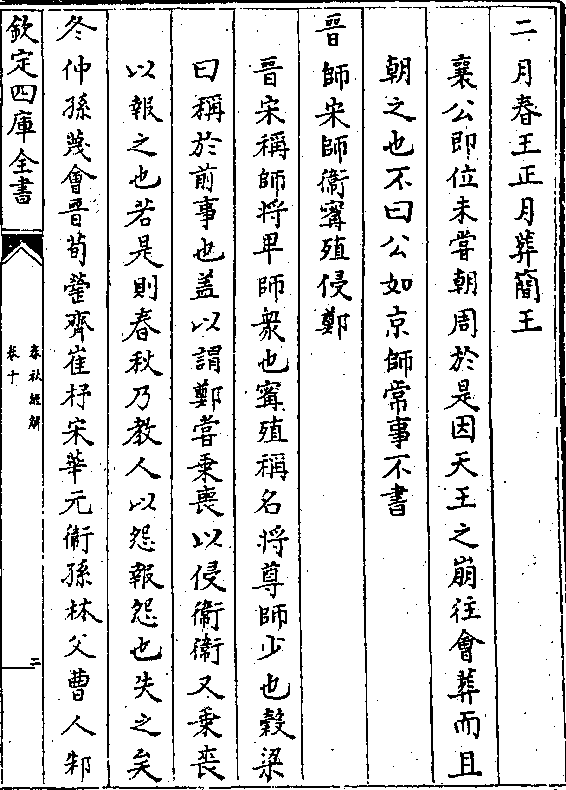 二月春王正月葬簡王
襄公即位未嘗朝周於是因天王之崩往會葬而且
朝之也不曰公如京師常事不書
晉師宋師衛甯殖侵鄭
晉宋稱師將卑師衆也甯殖稱名將尊師少也穀梁
曰稱於前事也盖以謂鄭嘗乗喪以侵衛衛又乗喪
以報之也若是則春秋乃教人以怨報怨也失之矣
冬仲孫蔑會晉荀罃齊崔杼宋華元衛孫林父曹人邾
欽定四庫全書
春秋經解
卷十
二